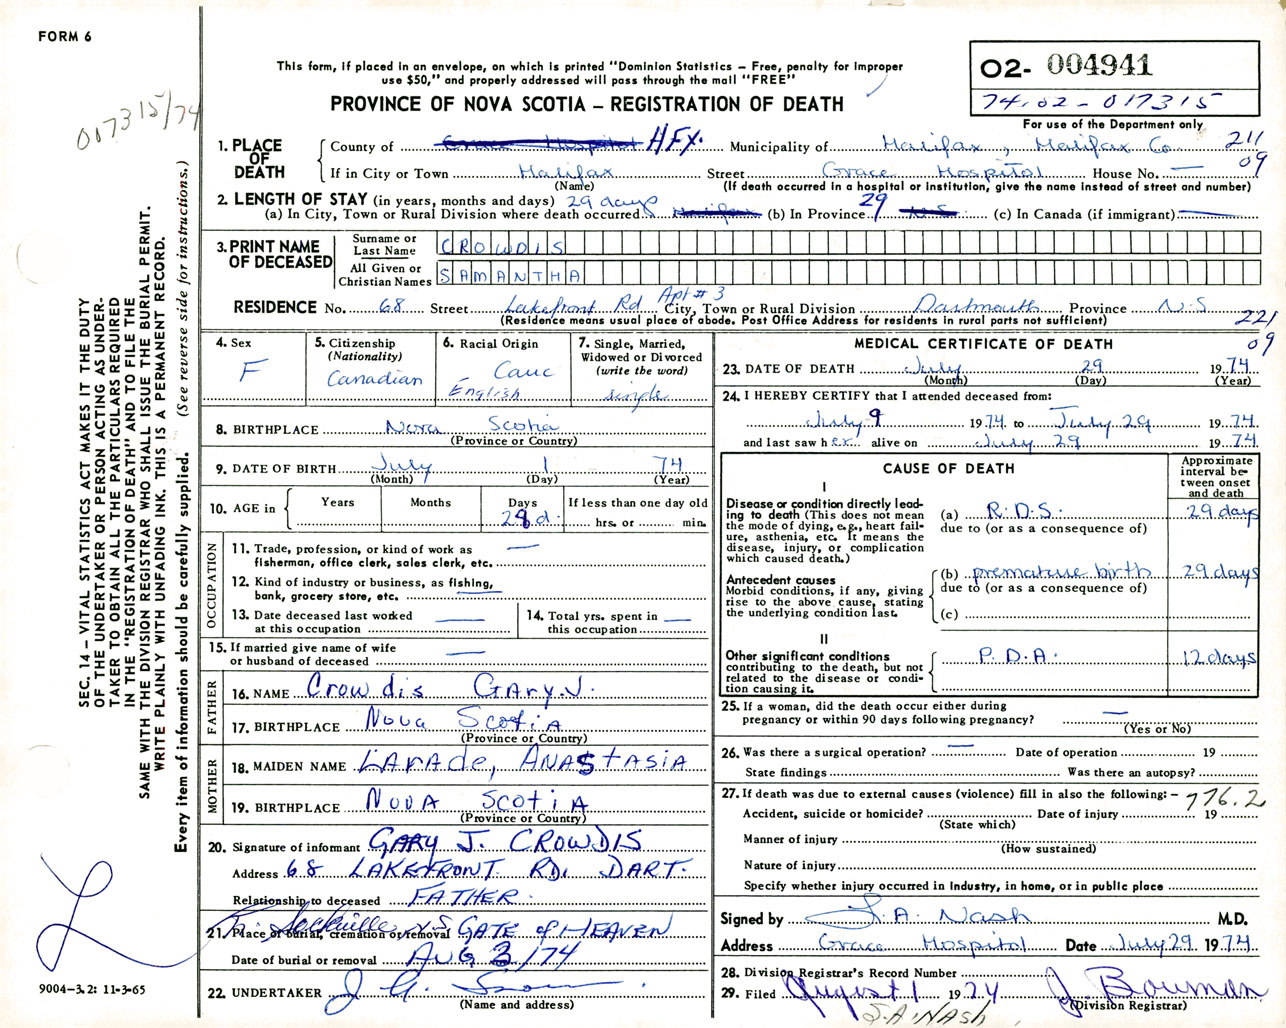 FORM 6
This form, if placed in an envelope, on which is printed "Dominion Statistics – Free, penalty for improper
use $50," and properly addressed will pass through the mail "FREE"
PROVINCE OF NOVA SCOTIA – REGISTRATION OF DEATH
O2- 004941
74.02-017315
For use of the Department only
017315/74
1. PLACE OF DEATH
County of Grace Hospital HFX. Municipality of Halifax, Halifax Co 211
If in City or Town Halifax Street Grace Hospital House No. — 09
(Name) (If death occurred in a hospital or institution, give the name instead of street and number)
2. LENGTH OF STAY (in years, months and days) 29 days
(a) In City, Town or Rural Division where death occurred Halifax (b) In Province 29 N.S. (c) In Canada (if immigrant) —
3. PRINT NAME OF DECEASED
Surname or Last Name CROWDIS
All Given or Christian Names SAMANTHA
RESIDENCE No. 68 Street Lakefront Rd Apt # 3 City, Town or Rural Division Dartmouth Province N.S
(Residence means usual place of abode. Post Office Address for residents in rural parts not sufficient)
221
09
4. Sex
F
5. Citizenship
(Nationality)
Canadian
6. Racial Origin
Cauc
English
7. Single, Married,
Widowed or Divorced
(write the word)
single
8. BIRTHPLACE Nova Scotia
(Province or Country)
9. DATE OF BIRTH July 1 74
(Month) (Day) (Year)
10. AGE in
Years Months Days If less than one day old
28 d. hrs. or min.
OCCUPATION
11. Trade, profession, or kind of work as —
fisherman, office clerk, sales clerk, etc.
12. Kind of industry or business, as fishing,
bank, grocery store, etc. —
13. Date deceased last worked
at this occupation —
14. Total yrs. spent in
this occupation —
15. If married give name of wife
or husband of deceased —
FATHER
16. NAME Crowdis Gary.J.
17. BIRTHPLACE Nova Scotia
(Province or Country)
MOTHER
18. MAIDEN NAME LArAde, ANAStASIA
19. BIRTHPLACE NOVA ScotiA
(Province or Country)
20. Signature of informant GARY J. CROWDIS
Address 68 LAKEFRONT RD. DART.
Relationship to deceased FATHER.
21. Place of burial, cremation or removal Sackville N.S GATE of HEAVEN
Date of burial or removal AUG 3/74
22. UNDERTAKER J. A. Snow
(Name and address)
MEDICAL CERTIFICATE OF DEATH
23. DATE OF DEATH July 29 1974
(Month) (Day) (Year)
24. I HEREBY CERTIFY that I attended deceased from:
July 9 1974 to July 29 1974
and last saw her alive on July 29 1974
CAUSE OF DEATH
Approximate
interval be-
tween onset
and death
I
Disease or condition directly lead-
ing to death (This does not mean
the mode of dying, e.g., heart fail-
ure, asthenia, etc. It means the
disease, injury, or complication
which caused death.)
(a) R.D.S. 29 days
due to (or as a consequence of)
Antecedent causes
Morbid conditions, if any, giving
rise to the above cause, stating
the underlying condition last.
(b) premature birth 29 days
due to (or as a consequence of)
(c)
II
Other significant conditions
contributing to the death, but not
related to the disease or condi-
tion causing it.
P.D.A. 12 days
25. If a woman, did the death occur either during
pregnancy or within 90 days following pregnancy? —
(Yes or No)
26. Was there a surgical operation? — Date of operation 19
State findings Was there an autopsy?
27. If death was due to external causes (violence) fill in also the following: - 776.2
Accident, suicide or homicide? Date of injury 19
(State which)
Manner of injury
(How sustained)
Nature of injury
Specify whether injury occurred in industry, in home, or in public place
Signed by A. Nash M.D.
Address Grace Hospital Date July 29 1974
28. Division Registrar's Record Number
29. Filed August 1 1974 J. Bowman
(Division Registrar)
NASH
SEC. 14 – VITAL STATISTICS ACT MAKES IT THE DUTY
OF THE UNDERTAKER OR PERSON ACTING AS UNDER-
TAKER TO OBTAIN ALL THE PARTICULARS REQUIRED
IN THE "REGISTRATION OF DEATH" AND TO FILE THE
SAME WITH THE DIVISION REGISTRAR WHO SHALL ISSUE THE BURIAL PERMIT.
WRITE PLAINLY WITH UNFADING INK. THIS IS A PERMANENT RECORD.
Every item of information should be carefully supplied. (See reverse side for instructions.)
9004-3.2: 11-3-65